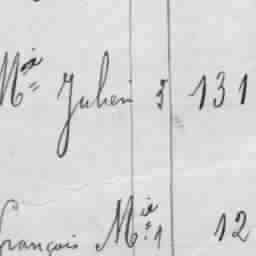 Mie Julien 3 131
François Mie 1 12